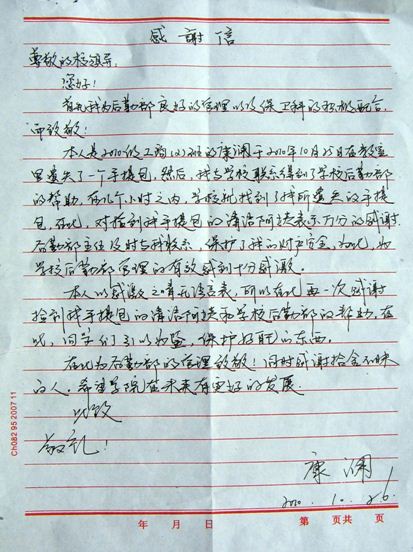 感謝信
尊敬的校领导:
您好!
首先我为后勤部良好的管理以及保卫科的积极配合,
而致敬!
本人是2010级工商(2)班的康澜于2010年10月25日在教室
里遗失了一个手提包,然后,我与学校联系得到了学校后勤部
的帮助,在几个小时之内,学校就找到了我所遗失的手提
包,在此,对捡到我手提包的清洁阿姨表示万分的感谢.
后勤部主任及时与我联系,保护了我的财产资金,为此,为
学校后勤部管理的有效感到十分感激.
本人以感激之情无法言表,所以在此再一次感谢
捡到我手提包的清洁阿姨和学校后勤部的帮助,在
此,同学们引以为鉴,保护好自己的东西.
在此为后勤部的管理致敬!同时感谢拾金不昧
的人,希望学院在未来有更好的发展.
此致
敬礼
康澜
2010.10.26.
年 月 日 第 页共 页
Ch082 95 2007 11